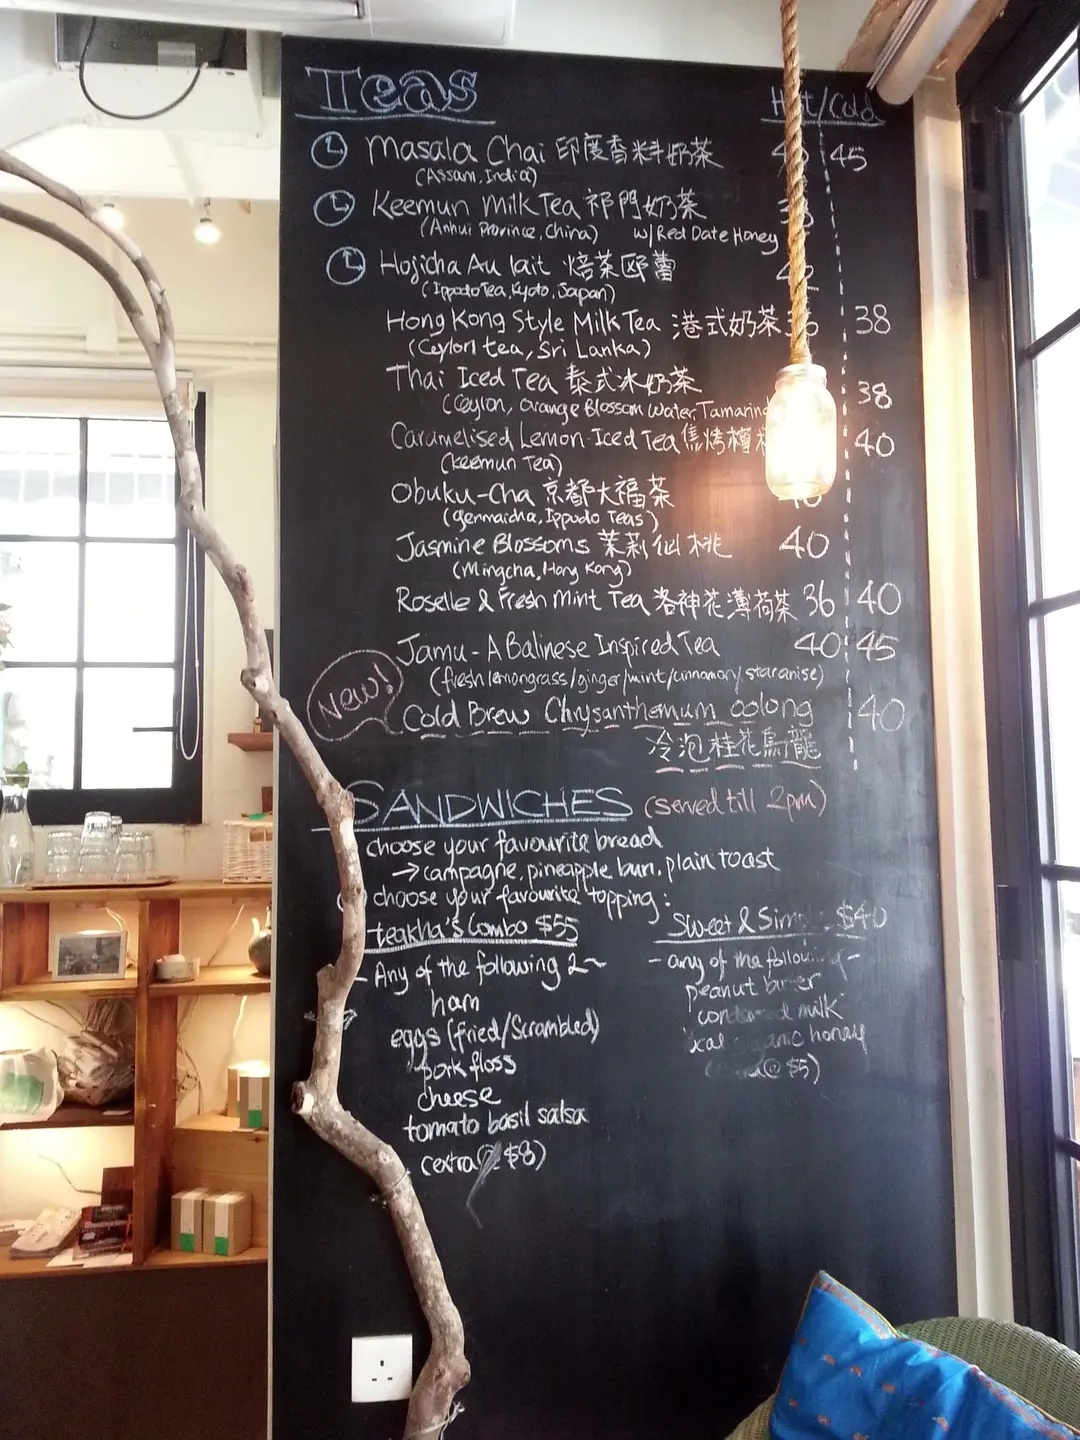 Teas Hot/Cold
Masala Chai 印度香料奶茶 45
(Assam, India)
Keemun Milk Tea 祁門奶茶
(Anhui Province, China) w/Red Date Honey
Hojicha Au lait 焙茶歐蕾
(Ippodo Tea, Kyoto, Japan)
Hong Kong Style Milk Tea 港式奶茶 38
(Ceylon tea, Sri Lanka)
Thai Iced Tea 泰式冰奶茶 38
(Ceylon, Orange Blossom Water, Tamarind
Caramelised Lemon Iced Tea 焦烤檸 40
(Keemun Tea)
Obuku-Cha 京都大福茶
(germaicha, Ippudo Teas)
Jasmine Blossoms 茉莉仙桃 40
(Mingcha, Hong Kong)
Roselle & Fresh Mint Tea 洛神花薄荷茶 36 40
Jamu - A Balinese Inspired Tea 40 45
(fresh lemongrass/ginger/mint/cinnamon/staranise)
New!
Cold Brew Chrysanthemum Oolong 40
冷泡桂花烏龍
SANDWICHES (served till 2pm)
choose your favourite bread
→ campagne, pineapple bun, plain toast
choose your favourite topping:
teakha's Combo $55
- Any of the following 2 ~
ham
eggs (fried/scrambled)
pork floss
cheese
tomato basil salsa
(extra@ $8)
Sweet & $40
- any of the
peanut butter
condensed milk
honey
@ $5)